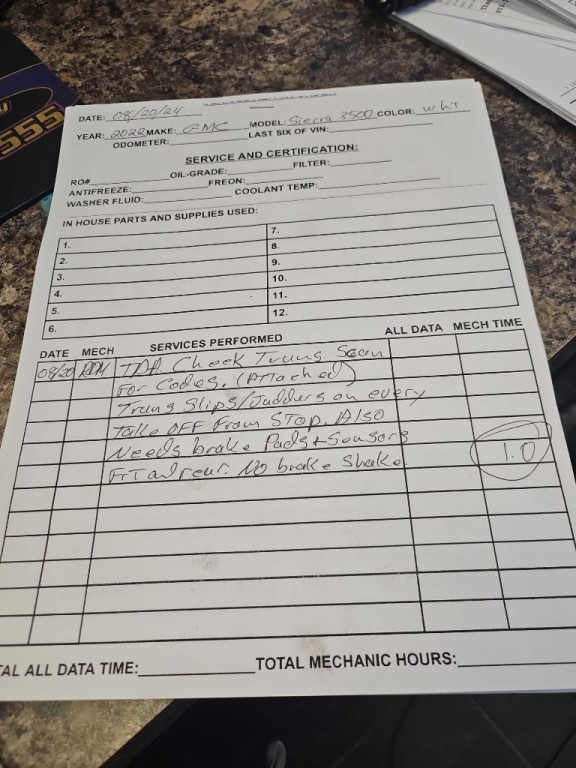 555
DATE: 08/20/24
YEAR: 2022 MAKE: GMC MODEL: Sierra 3500 COLOR: wht
ODOMETER: LAST SIX OF VIN:
SERVICE AND CERTIFICATION:
RO# OIL-GRADE: FILTER:
ANTIFREEZE: FREON:
WASHER FLUID: COOLANT TEMP:
IN HOUSE PARTS AND SUPPLIES USED:
1. 7.
2. 8.
3. 9.
4. 10.
5. 11.
6. 12.
DATE MECH SERVICES PERFORMED ALL DATA MECH TIME
08/20 Check Trans. Scan
For Codes. (ATTached)
Trans Slips/Judders on every
Take OFF From STOP. Also
Needs brake Pads + Sensors
FrT and rear. No brake Shake. 1.0
AL ALL DATA TIME: TOTAL MECHANIC HOURS: